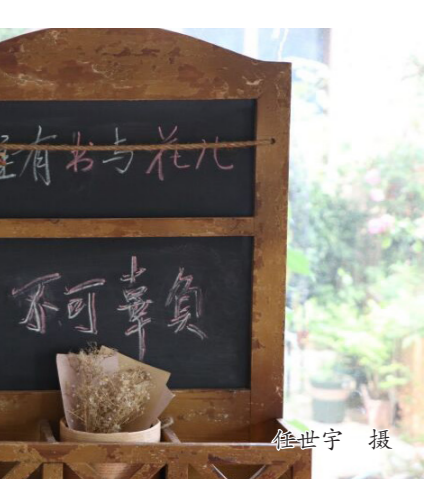 有书与花儿
不可辜负
任世宇 摄